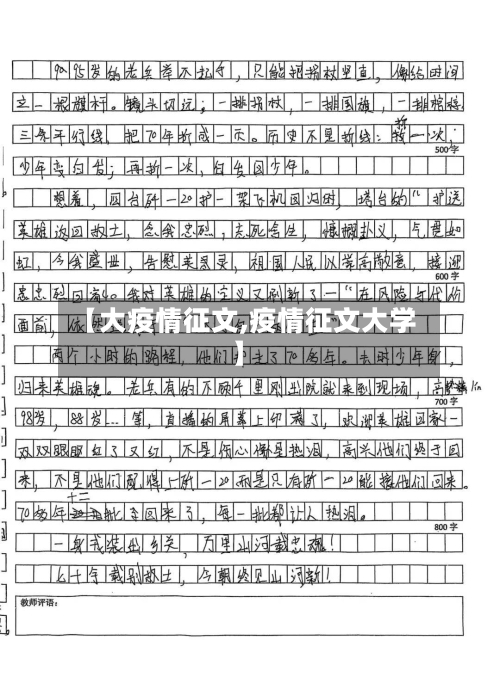 90、95岁的老兵举不起手，只能把拐杖竖直，像给时间
立一根旗杆。镜头切远；一排拐杖，一排国旗，一排棺椁
三条平行线，把70年折成一天。历史不是折线：折一次，
500字
少年变白发；再折一次，白发回少年。
想着，四台歼一20护一架飞机回归时，塔台的"护送
英雄返回故土，念我忠烈，亡死舍生，慷慨赴义，气贯如
虹，今我盛世，告慰英灵，祖国人民以崇高敬意，接迎
600字
忠烈回家。我对英雄的定义又刷新了一"在风险与代价
面前，依然
【大疫情征文,疫情征文大学
】
两个小时的路程，他们走了70多年。去时少年身，
归来英雄魂。老兵有的不顾千里刚出院就来到现场，高
700字
98岁，88岁...等，直播的屏幕上印满了，欢迎英雄回家一
双双眼眶红了又红，不是伤心而是热泪，高兴他们终于回
来，不是他们配得上歼一20而是只有歼一20能接他们回来。
十二
70多年批了回来了，每一批都让人热泪。
800字
一身戎装出乡关，万里山河载忠魂！
七十余载别故土，今朝终见山河新！
教师评语：